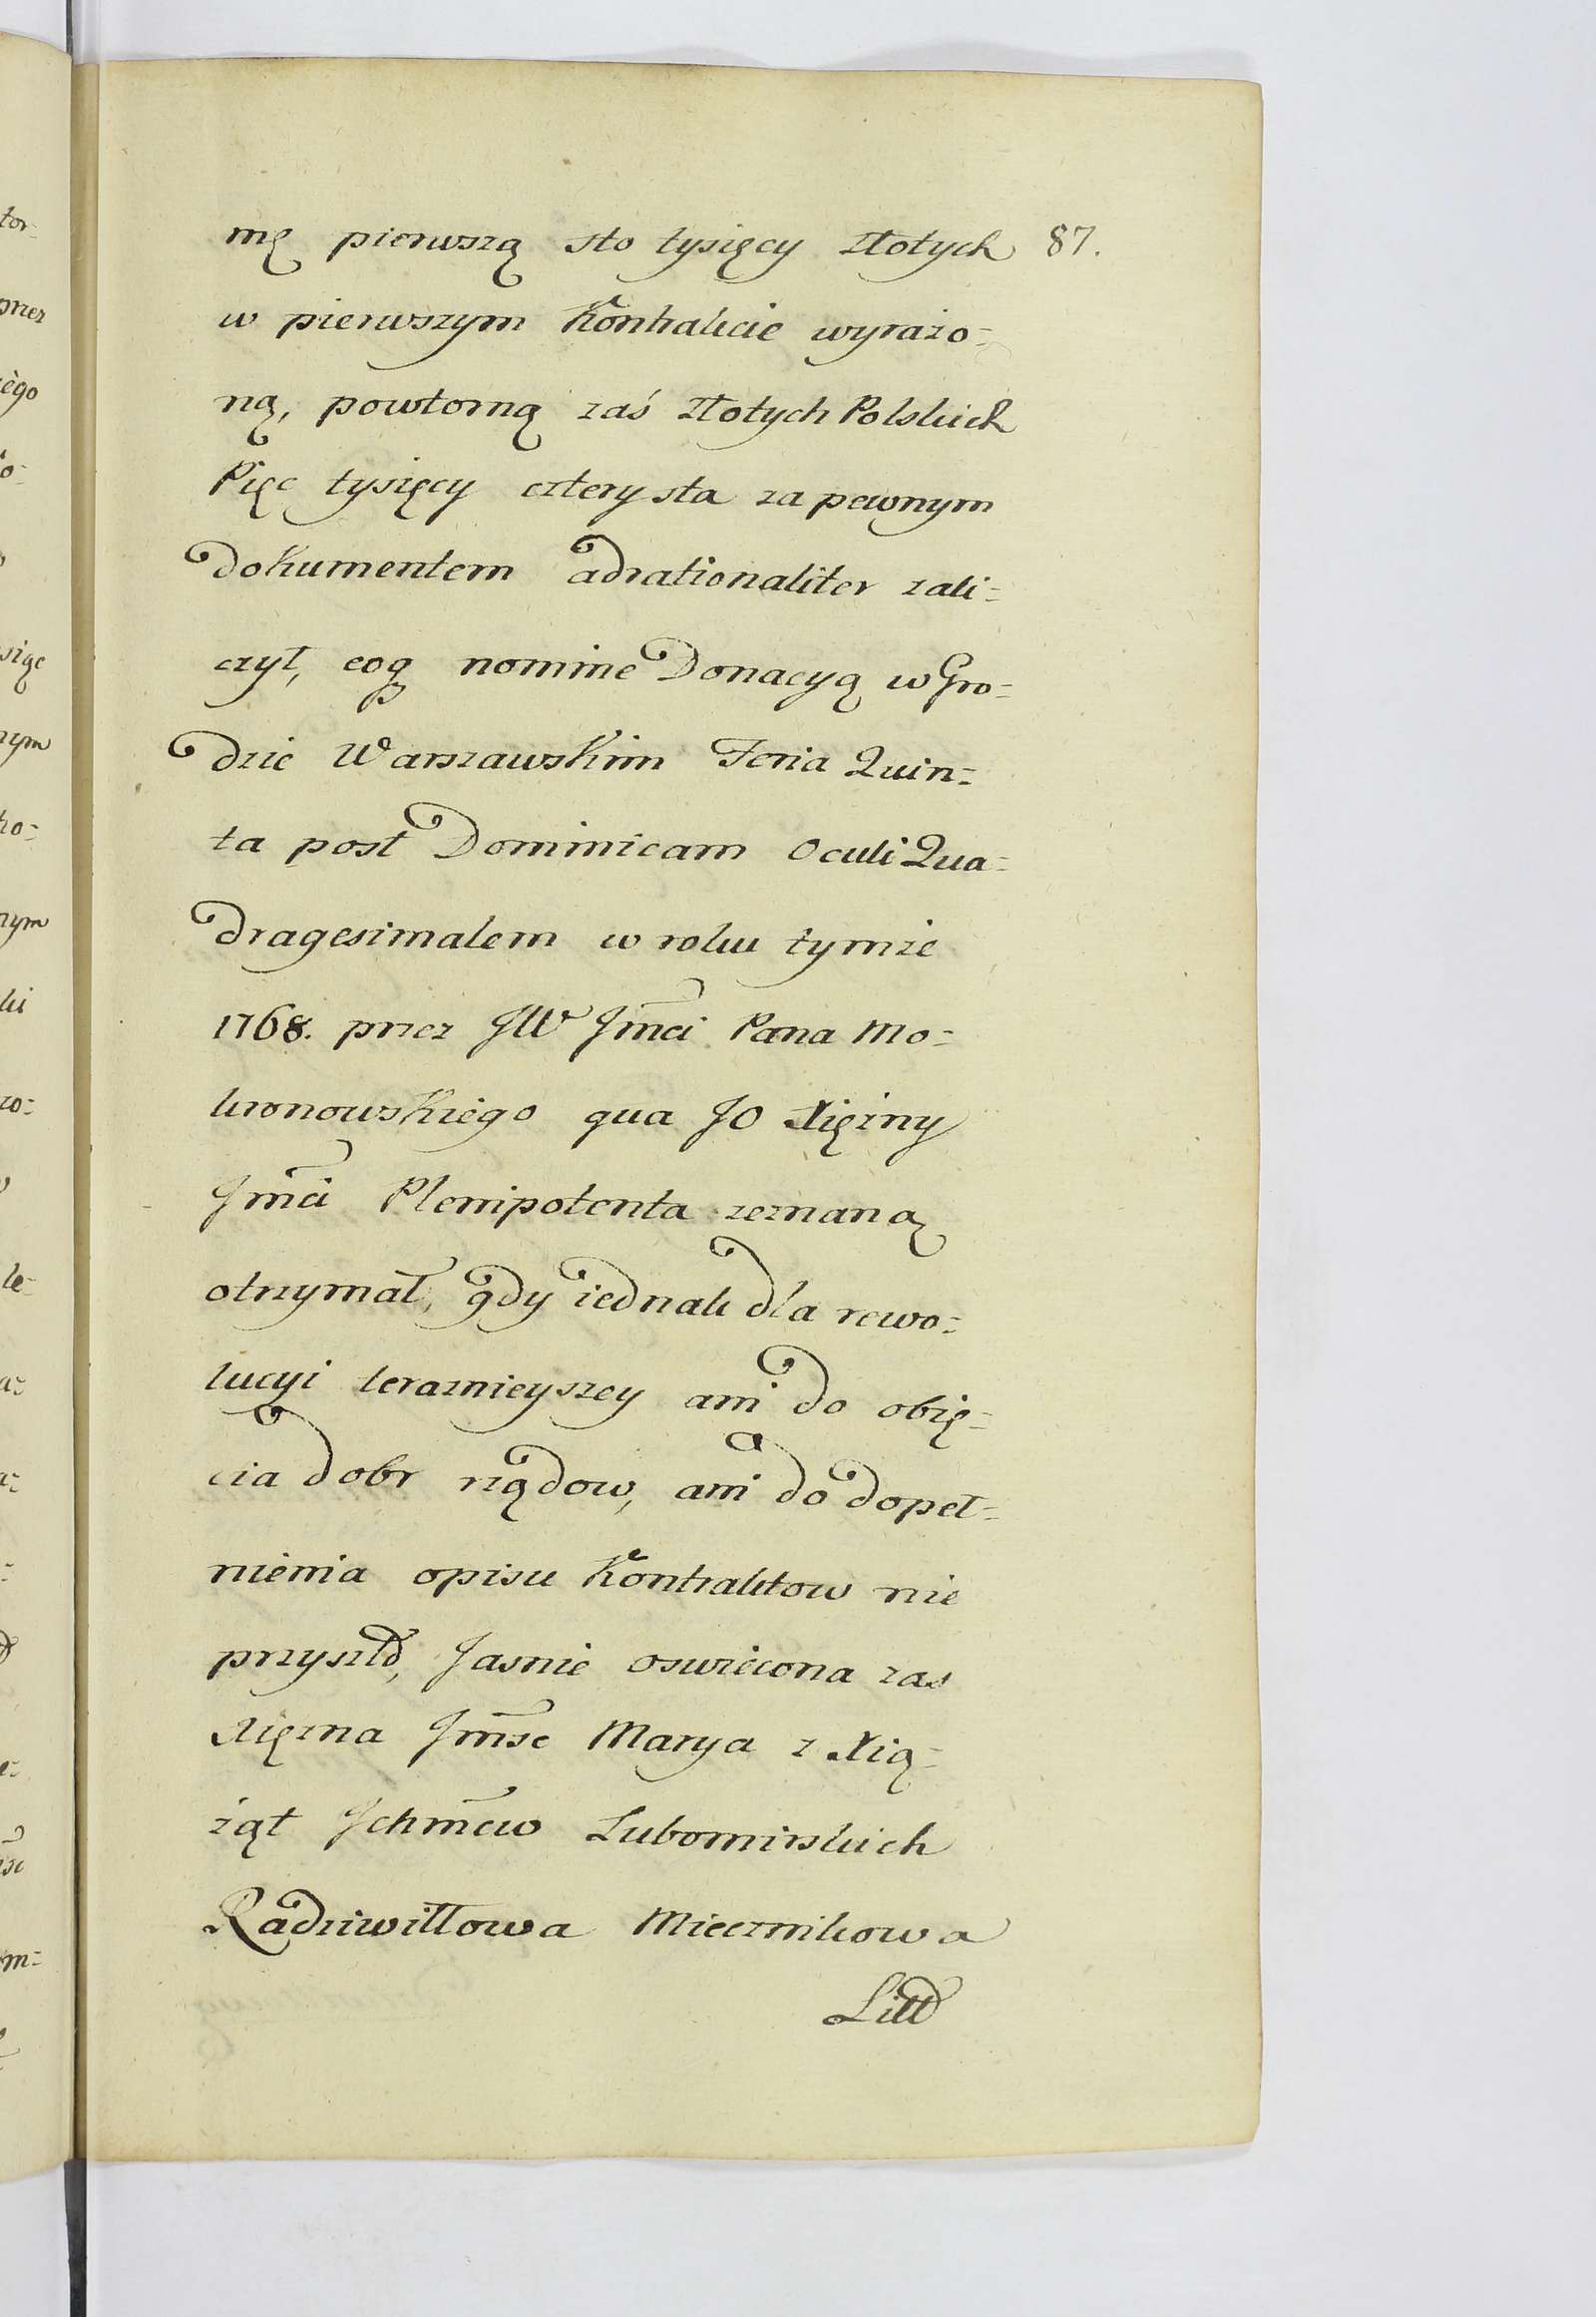 mę pierwszą sto tysięcy złotych 87.
w pierwszym Kontrakcie wyrażo=
ną, powtorną zaś złotych Polskich
Pięc tysięcy czterysta za pewnym
dokumentem adrationaliter zali=
czył, eoq nomine Donacyą w Gro=
dzie Warszawskim Feria Quin=
ta post Dominicam Oculi Qua=
dragesimalem w roku tymze
1768. przez JW Jmci Pana Mo=
kronowskiego qua JO Xięzny
Jmci Plenipotenta zeznaną
otrzymał, gdy iednak dla rewo=
lucyi teraznieyszey ani do obię=
cia dobr rządow, ani do dopeł=
nienia opisu Kontraktow nie
przyszło, Jasnie oswiecona zas
Xięzna Jmsc Marya z Xią=
żąt Jchmcw Lubomirskich
Radziwiłłowa Miecznikowa
Litt